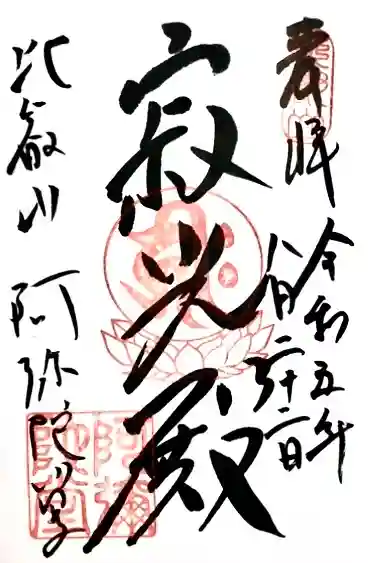 奉拝
令和五年
八月二十二日
寂光殿
比叡山 阿弥陀堂
阿彌陀堂